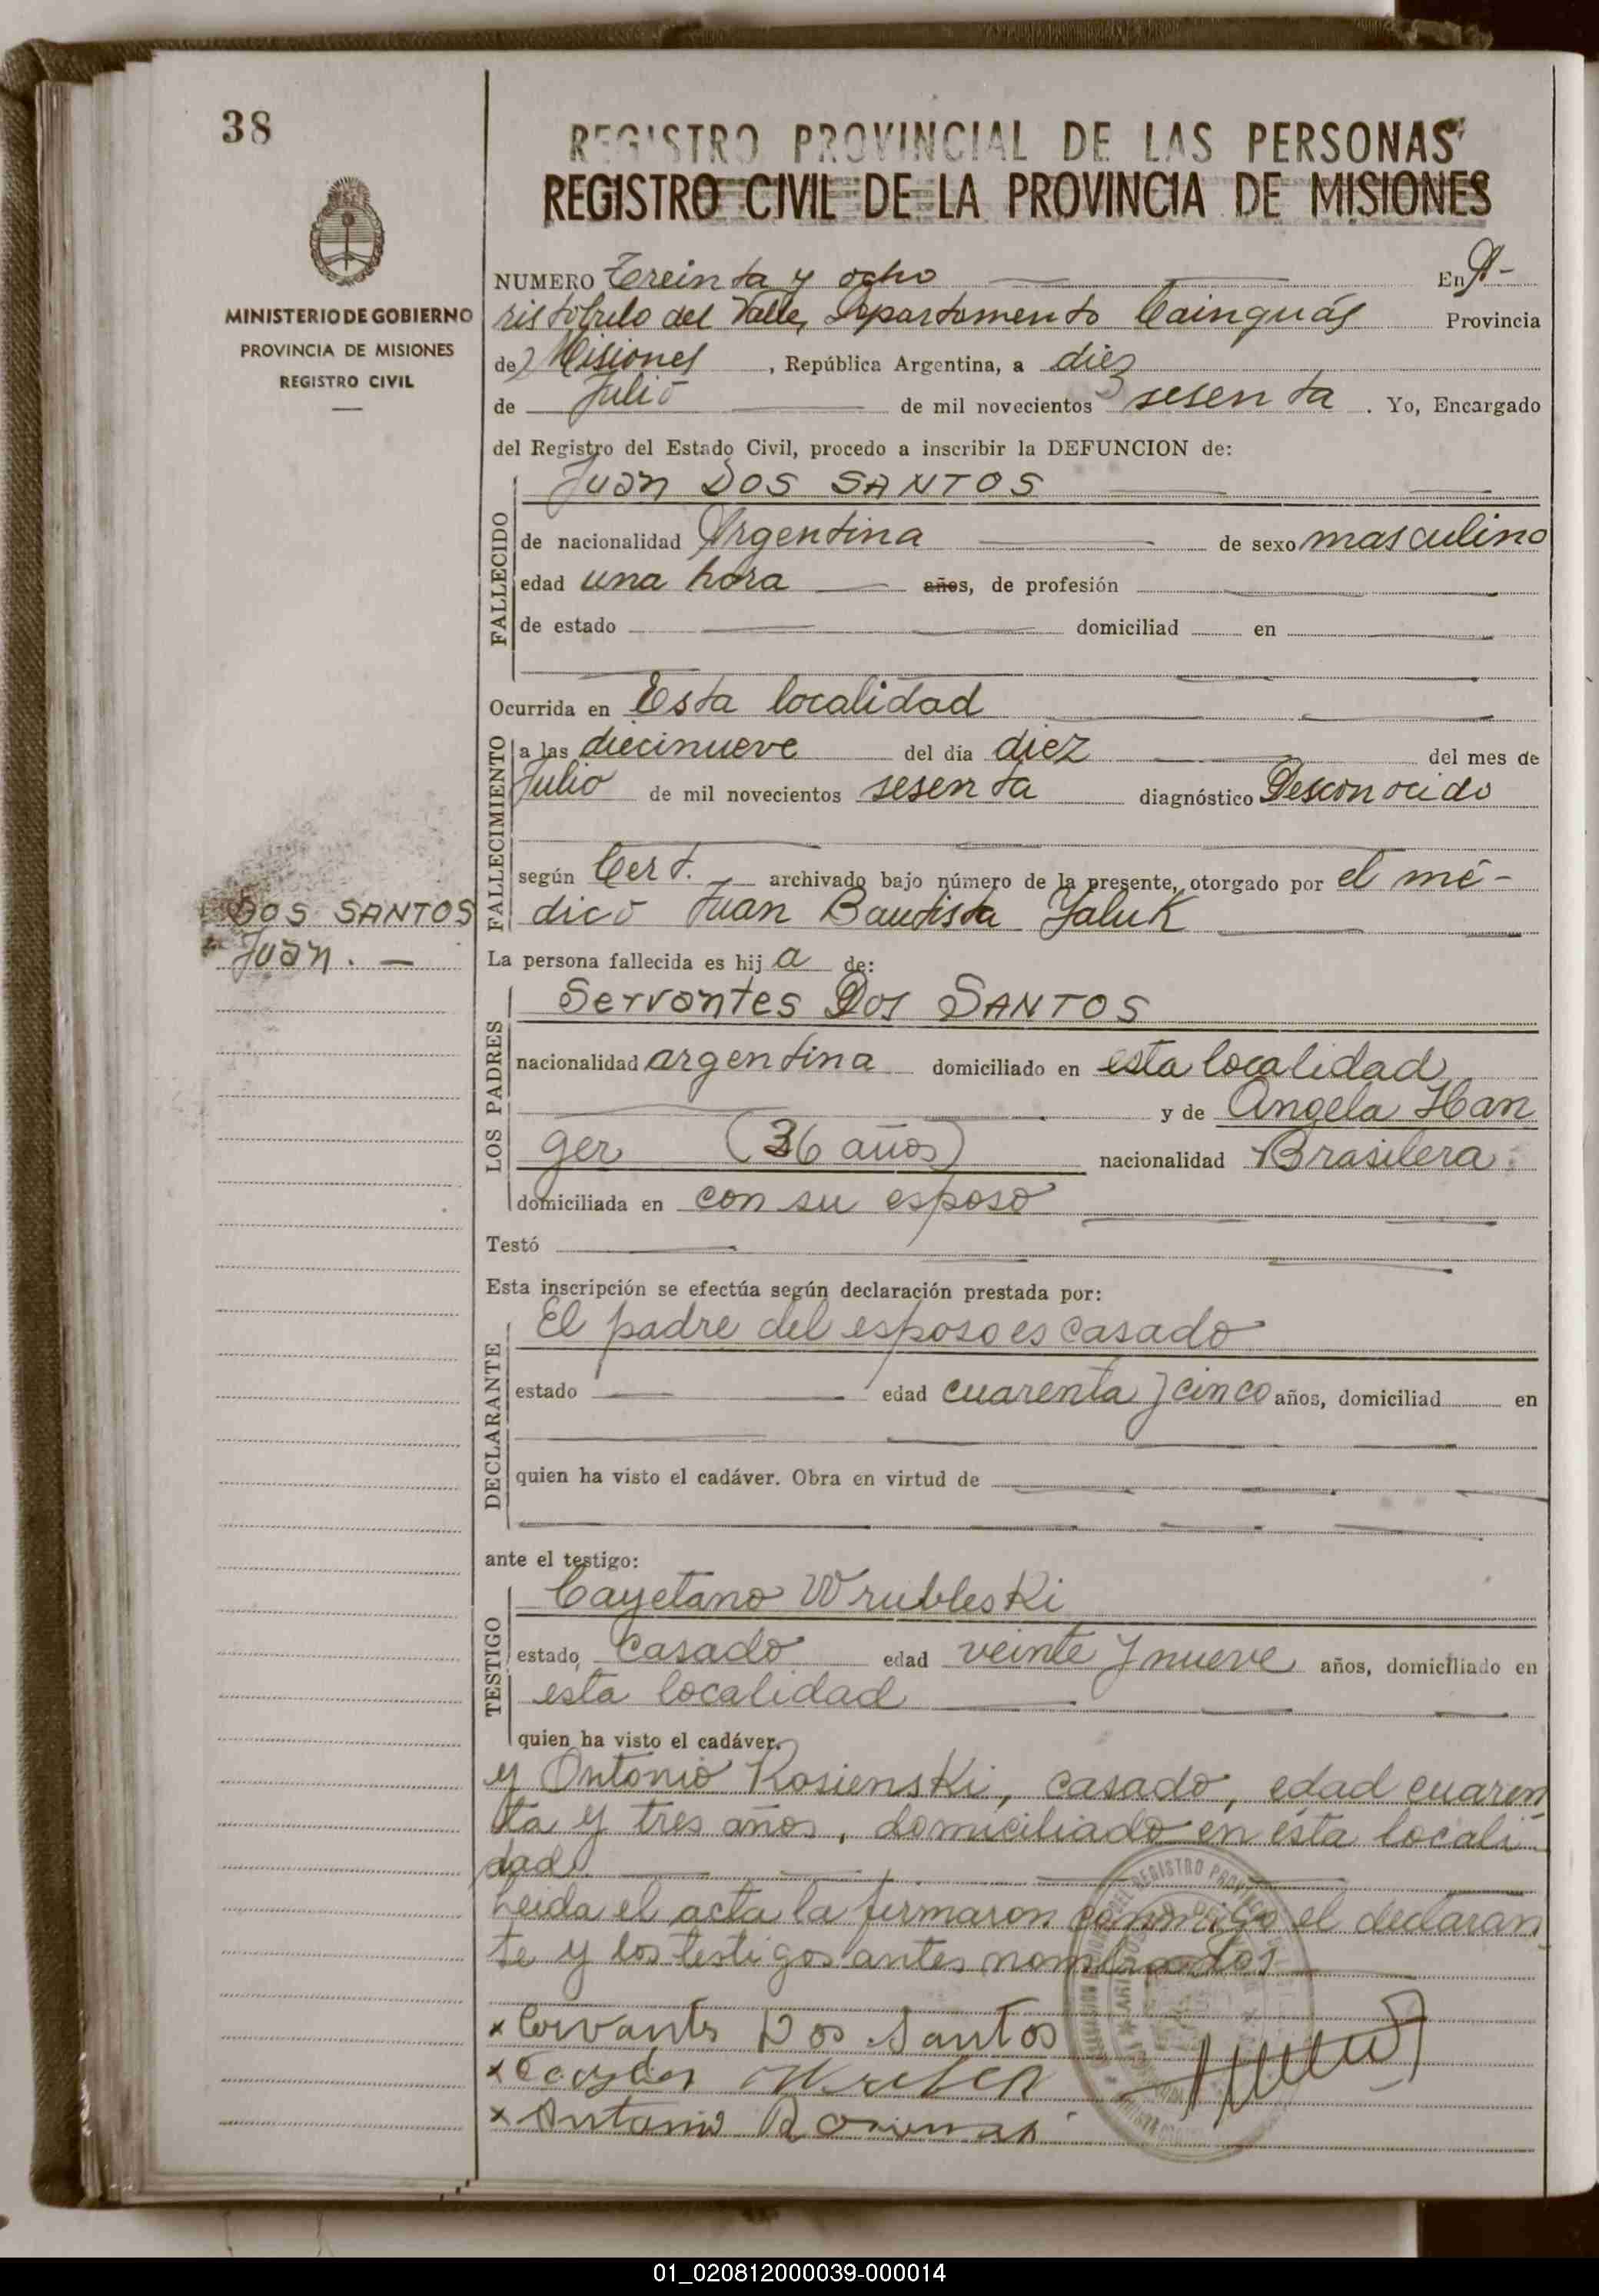 38
REGISTRO PROVINCIAL DE LAS PERSONAS
REGISTRO CIVIL DE LA PROVINCIA DE MISIONES
MINISTERIO DE GOBIERNO
PROVINCIA DE MISIONES
REGISTRO CIVIL
NUMERO Treinta y ocho En A-
ristóbulo del Valle, Departamento Cainguás Provincia
de Misiones, República Argentina, a diez
de Julio de mil novecientos sesenta. Yo, Encargado
del Registro del Estado Civil, procedo a inscribir la DEFUNCION de:
FALLECIDO
Juan DOS SANTOS
de nacionalidad Argentina de sexo masculino
edad una hora años, de profesión
de estado domiciliad en
Ocurrida en Esta localidad
FALLECIMIENTO
a las diecinueve del día diez del mes de
Julio de mil novecientos sesenta diagnóstico Desconocido
según Cert. archivado bajo número de la presente, otorgado por el mé-
dico Juan Bautista Yaluk
DOS SANTOS
Juan. —
La persona fallecida es hij a de:
LOS PADRES
Servantes Dos SANTOS
nacionalidad argentina domiciliado en esta localidad
y de Angela Han
ger (36 años) nacionalidad Brasilera.
domiciliada en con su esposo
Testó
Esta inscripción se efectúa según declaración prestada por:
DECLARANTE
El padre del esposo es casado
estado edad cuarenta y cinco años, domiciliad en
quien ha visto el cadáver. Obra en virtud de
ante el testigo:
TESTIGO
Cayetano Wrubleski
estado casado edad veinte y nueve años, domiciliado en
esta localidad
quien ha visto el cadáver.
y Antonio Rosienski, casado, edad cuaren
ta y tres años, domiciliado en ésta locali
dad.
Leida el acta la firmaron conmigo el declaran
te y los testigos antes nombrados
x Cervantes Dos Santos
x
x Antonio
01_020812000039-000014